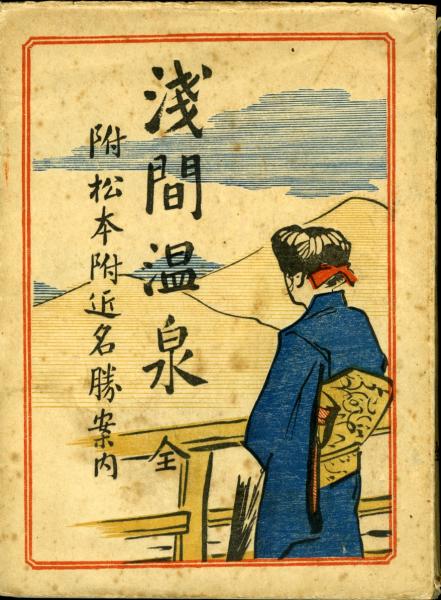 淺間温泉
全
附松本附近名勝案内